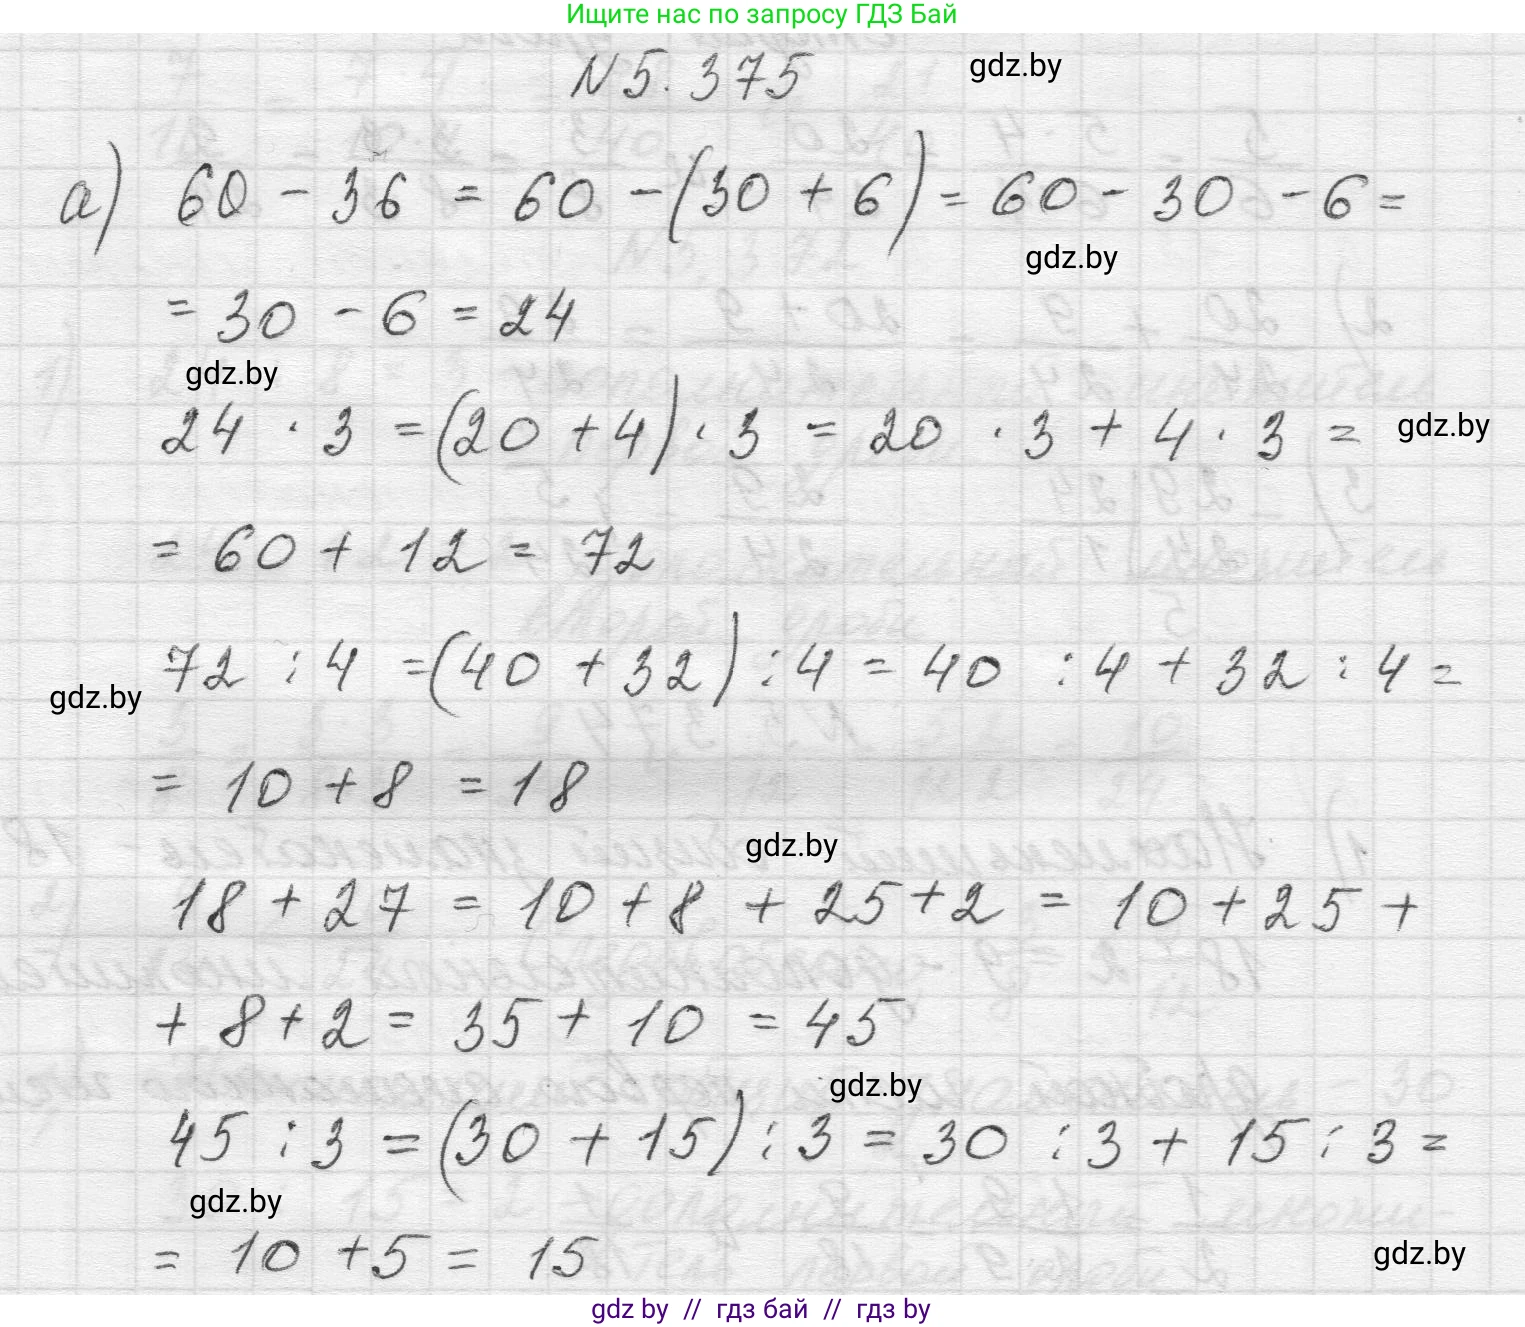 Ищите нас по запросу ГДЗ Бай
N 5.375 gdz.by
а) 60 - 36 = 60 - (30 + 6) = 60 - 30 - 6 =
gdz.by
= 30 - 6 = 24
gdz.by
24 · 3 = (20 + 4) · 3 = 20 · 3 + 4 · 3 = gdz.by
= 60 + 12 = 72
72 : 4 = (40 + 32) : 4 = 40 : 4 + 32 : 4 =
gdz.by
= 10 + 8 = 18
gdz.by
18 + 27 = 10 + 8 + 25 + 2 = 10 + 25 +
+ 8 + 2 = 35 + 10 = 45
gdz.by
45 : 3 = (30 + 15) : 3 = 30 : 3 + 15 : 3 =
gdz.by
= 10 + 5 = 15 gdz.by
gdz by // гдз бай // гдз by